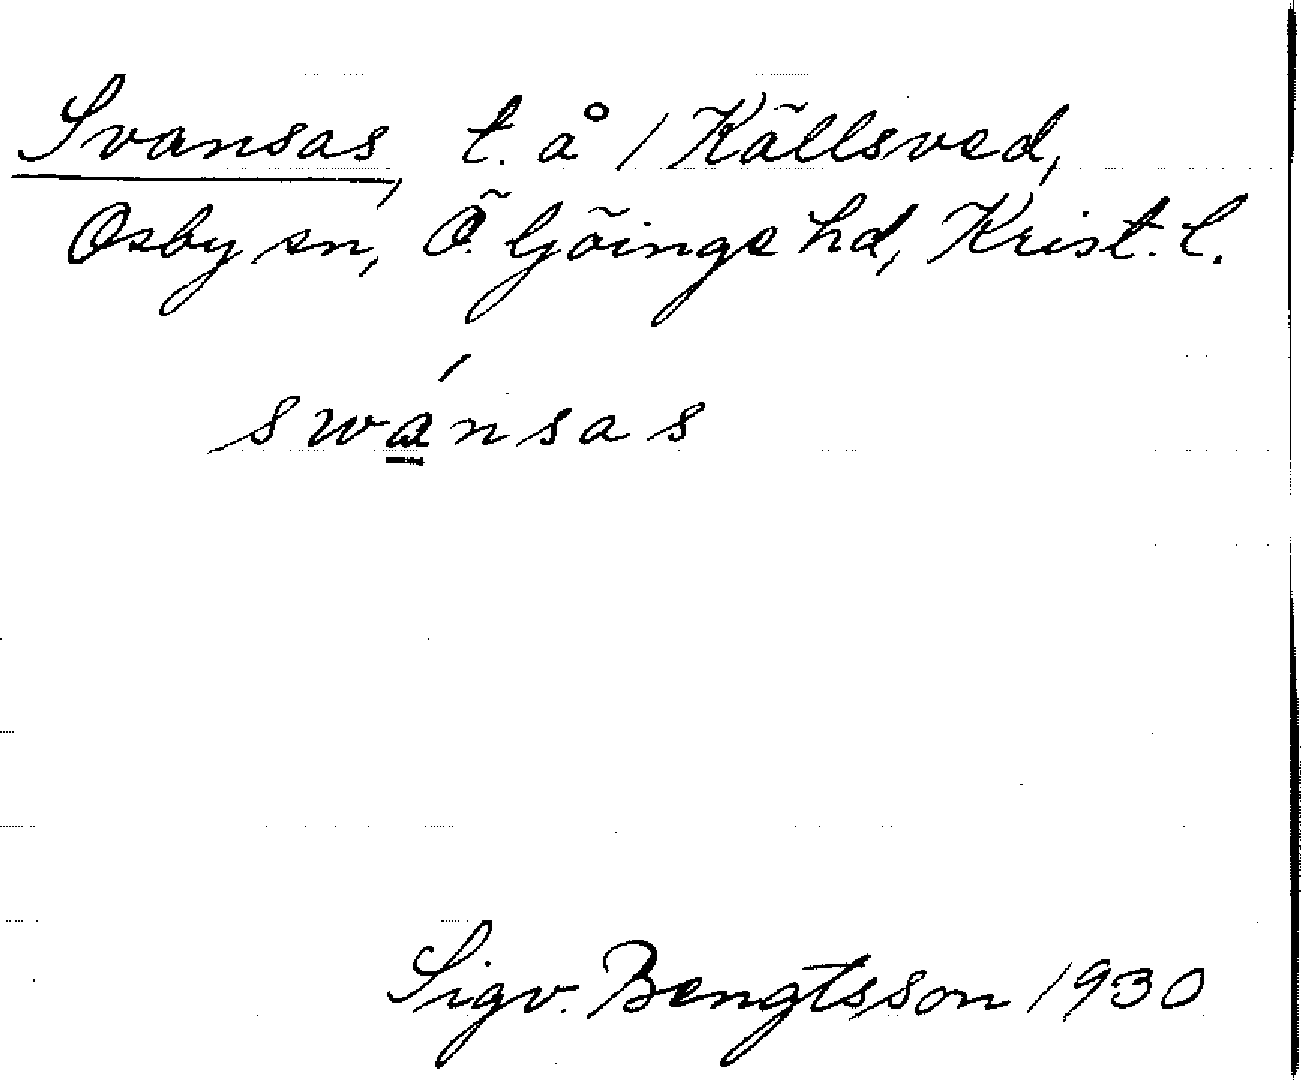 Svansas, t. å / Källsved,
Osby sn, Ö. Göinge hd, Krist. l.
swánsas
Sigv. Bengtsson 1930